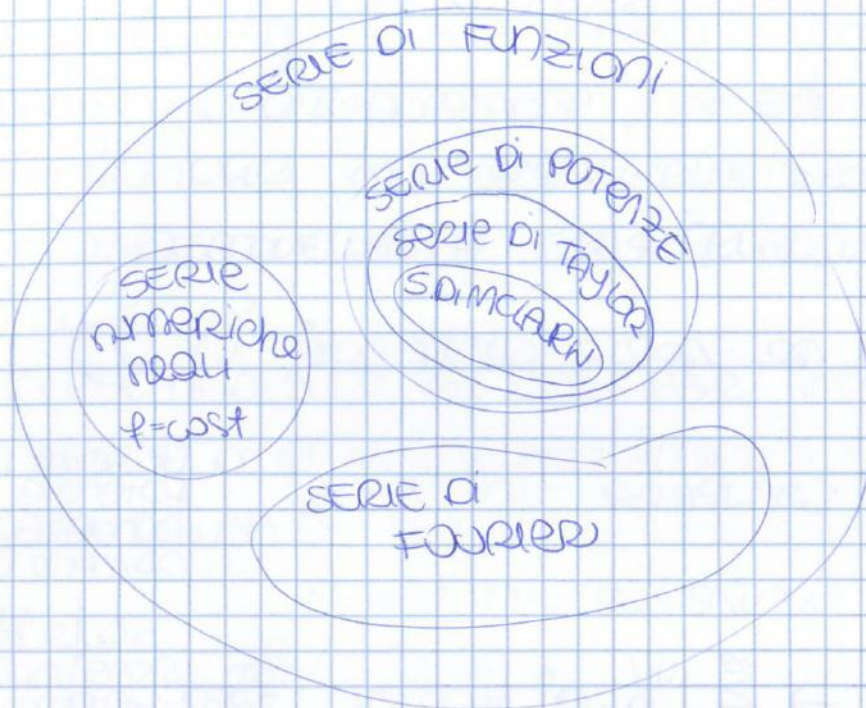 SERIE DI FUNZIONI
SERIE DI POTENZE
SERIE DI TAYLOR
S.DI MCLAURIN
SERIE
NUMERICHE
REALI
f=cost
SERIE DI
FOURIER